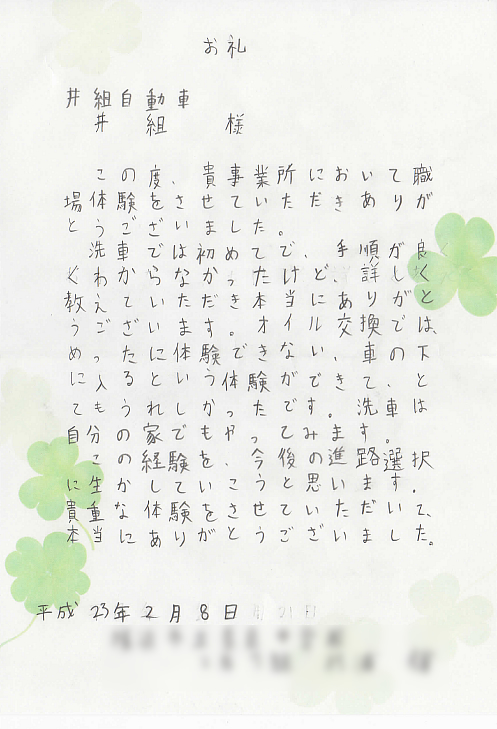 お礼
井組自動車
井 組 様
この度、貴事業所において職
場体験をさせていただきありが
とうございました。
洗車では初めてで、手順が良
くわからなかったけど、詳しく
教えていただき本当にありがと
うございます。オイル交換では、
めったに体験できない、車の下
に入るという体験ができて、と
てもうれしかったです。洗車は
自分の家でもやってみます。
この経験を、今後の進路選択
に生かしていこうと思います。
貴重な体験をさせていただいて、
本当にありがとうございました。
平成23年2月8日